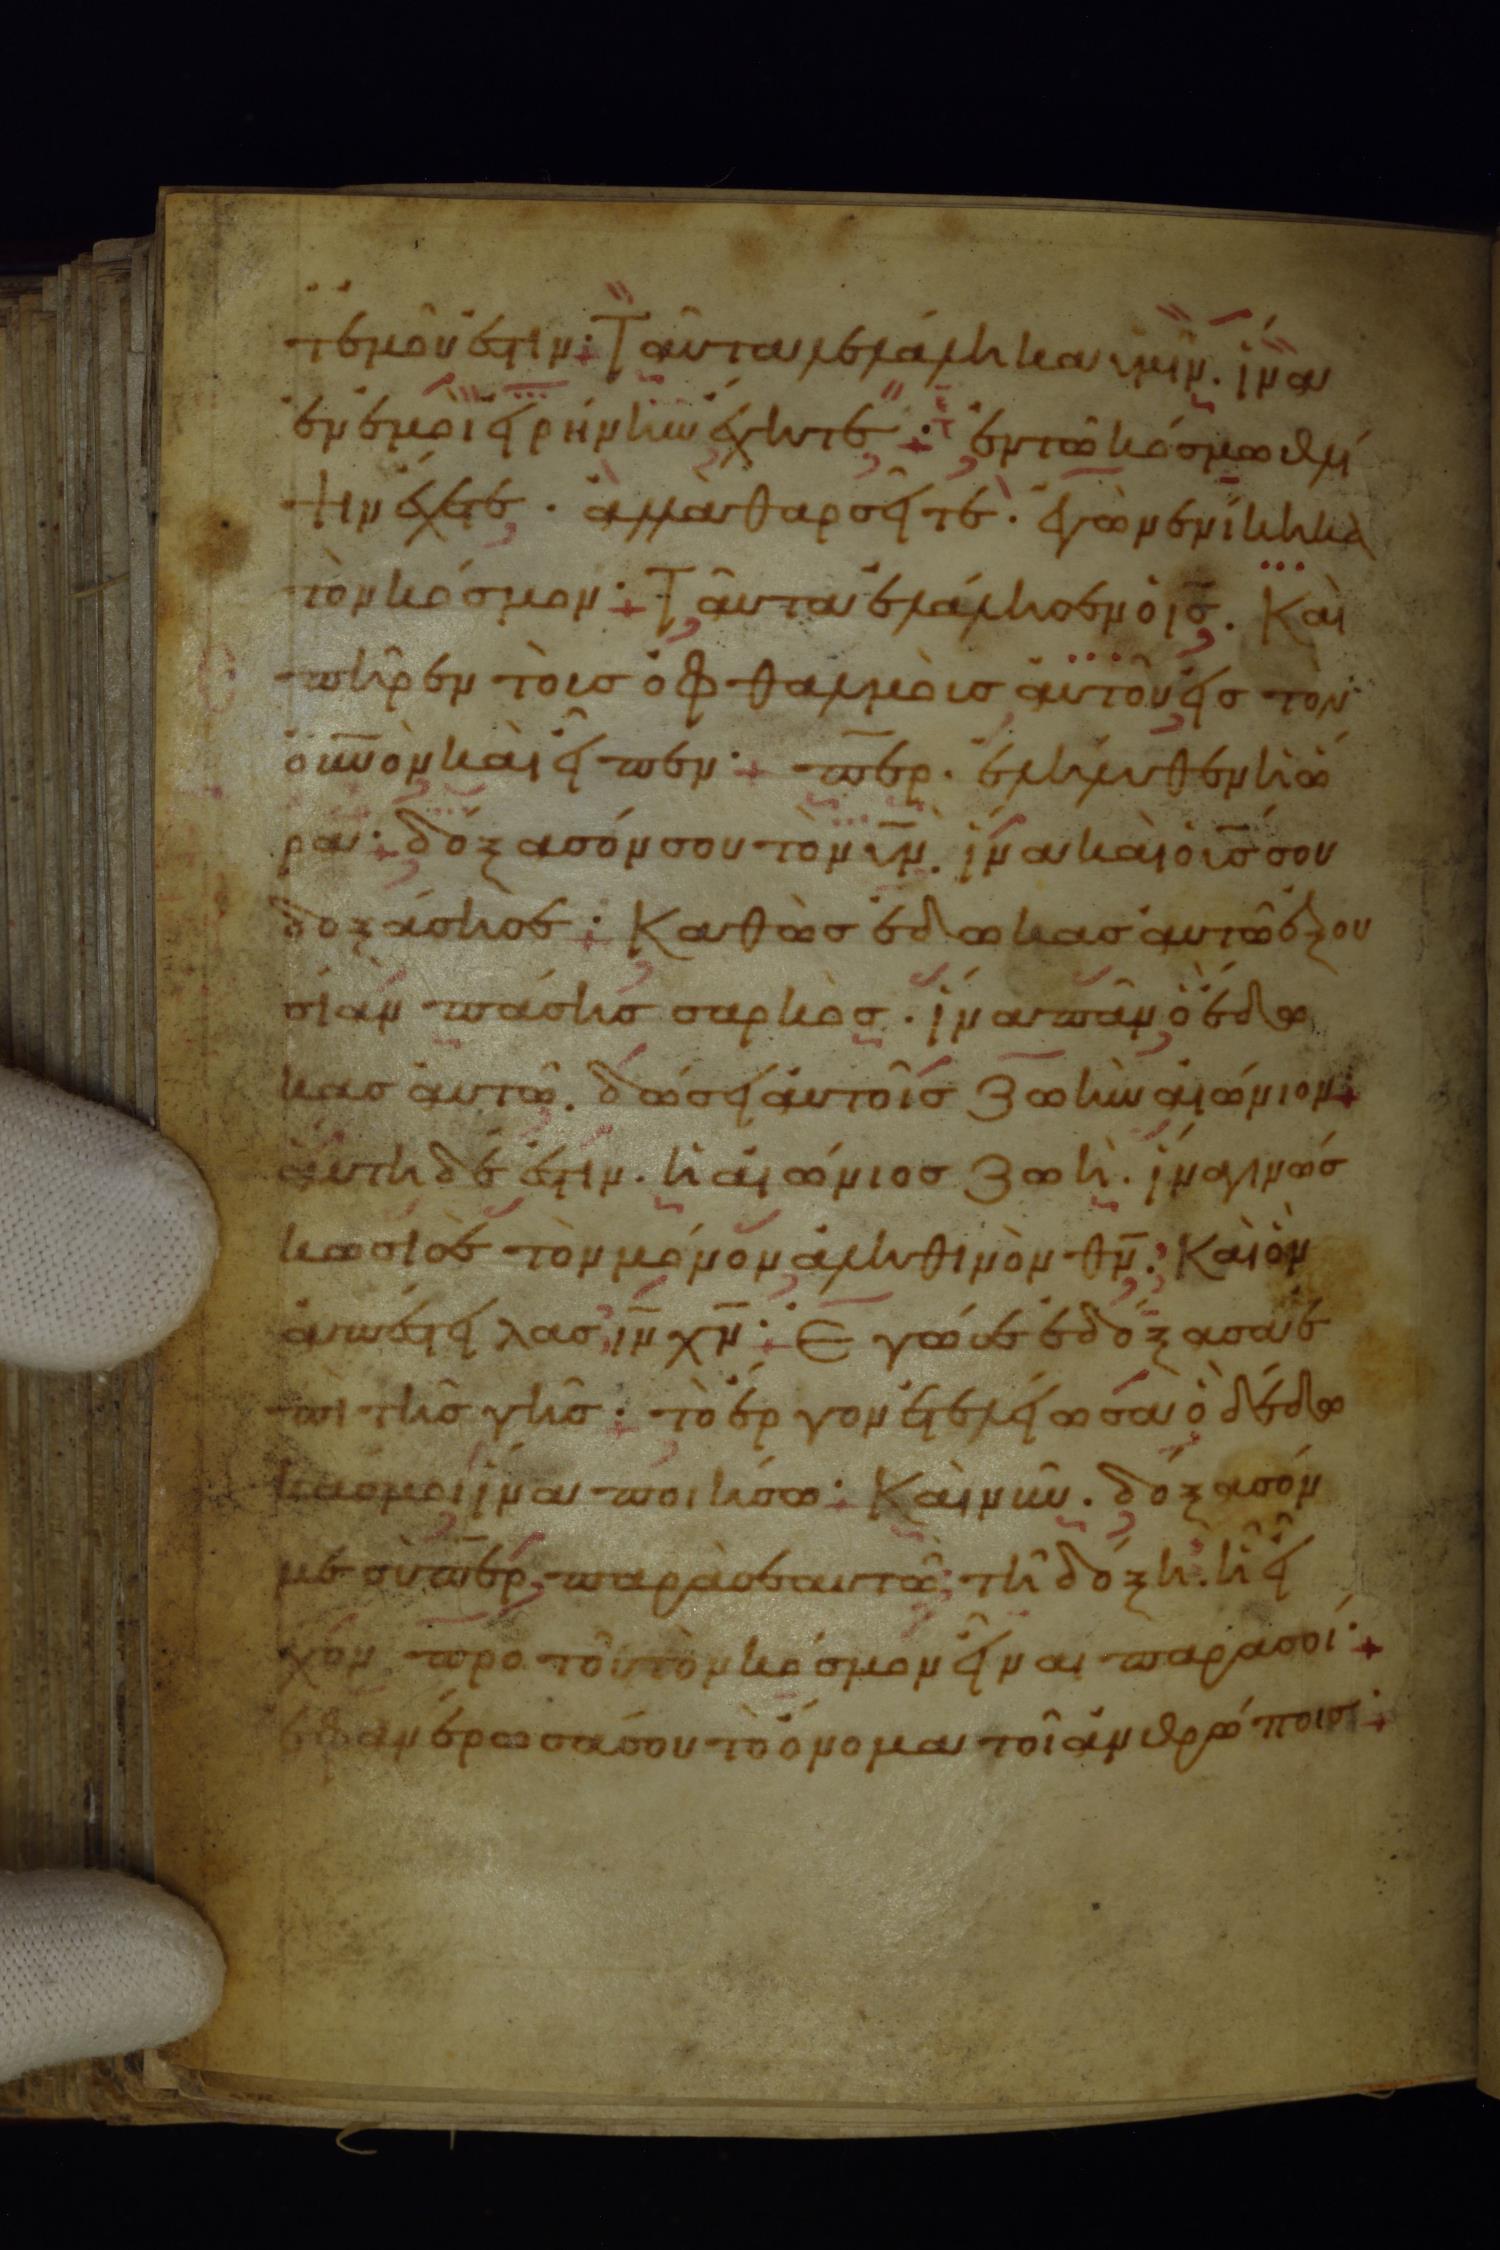 τεμοῦ ἐστιν· Ταῦτα λελάληκα ὑμῖν. ἵνα
ἐν ἐμοὶ εἰρήνην ἔχητε· ἐν τῶ κόσμω θλί
ψιν ἔχετε· ἀλλὰ θαρσεῖτε· ἐγὼ νενίκηκα
τὸν κόσμον· Ταῦτα ἐλάλησεν ὁ ις̅. Καὶ
ἐπῆρεν τοὺς ὀφθαλμοὺς αὐτοῦ εἰς τὸν
ου̅νὸν καὶ εἶπεν· π̅ερ. ἐλήλυθεν ἡ ὥ
ρα· δόξασόν σου τὸν υ̅ν. ἵνα καὶ ὁ υ̅ς σου
δοξάση σε· Καθὼς ἔδωκας αὐτῶ ἐξου
σίαν πάσης σαρκὸς. ἵνα πᾶν ὃ ἔδω
κας αὐτῶ. δώσει αὐτοῖς ζωὴν αἰώνιον
αὕτη δέ ἐστιν. ἡ αἰώνιος ζωὴ. ἵνα γινώσ
κωσί σε τὸν μόνον ἀληθινὸν θ̅ν· Καὶ ὃν
ἀπέστειλας ι̅ν χ̅ν· Ἐγώ σε ἐδόξασα ἐ
πὶ τῆς γῆς· τὸ ἔργον ἐτελείωσα ὃ δέδω
κας μοι ἵνα ποιήσω· Καὶ νῦν. δόξασόν
με σὺ π̅ερ, παρὰ σεαυτῶ, τῆ δόξη. ἣ εἶ
χον προ τοῦ τὸν κόσμον εἶναι παρὰ σοί·
ἐφανέρωσά σου τὸ ὄνομα τοῖ ἀνθρώποις·